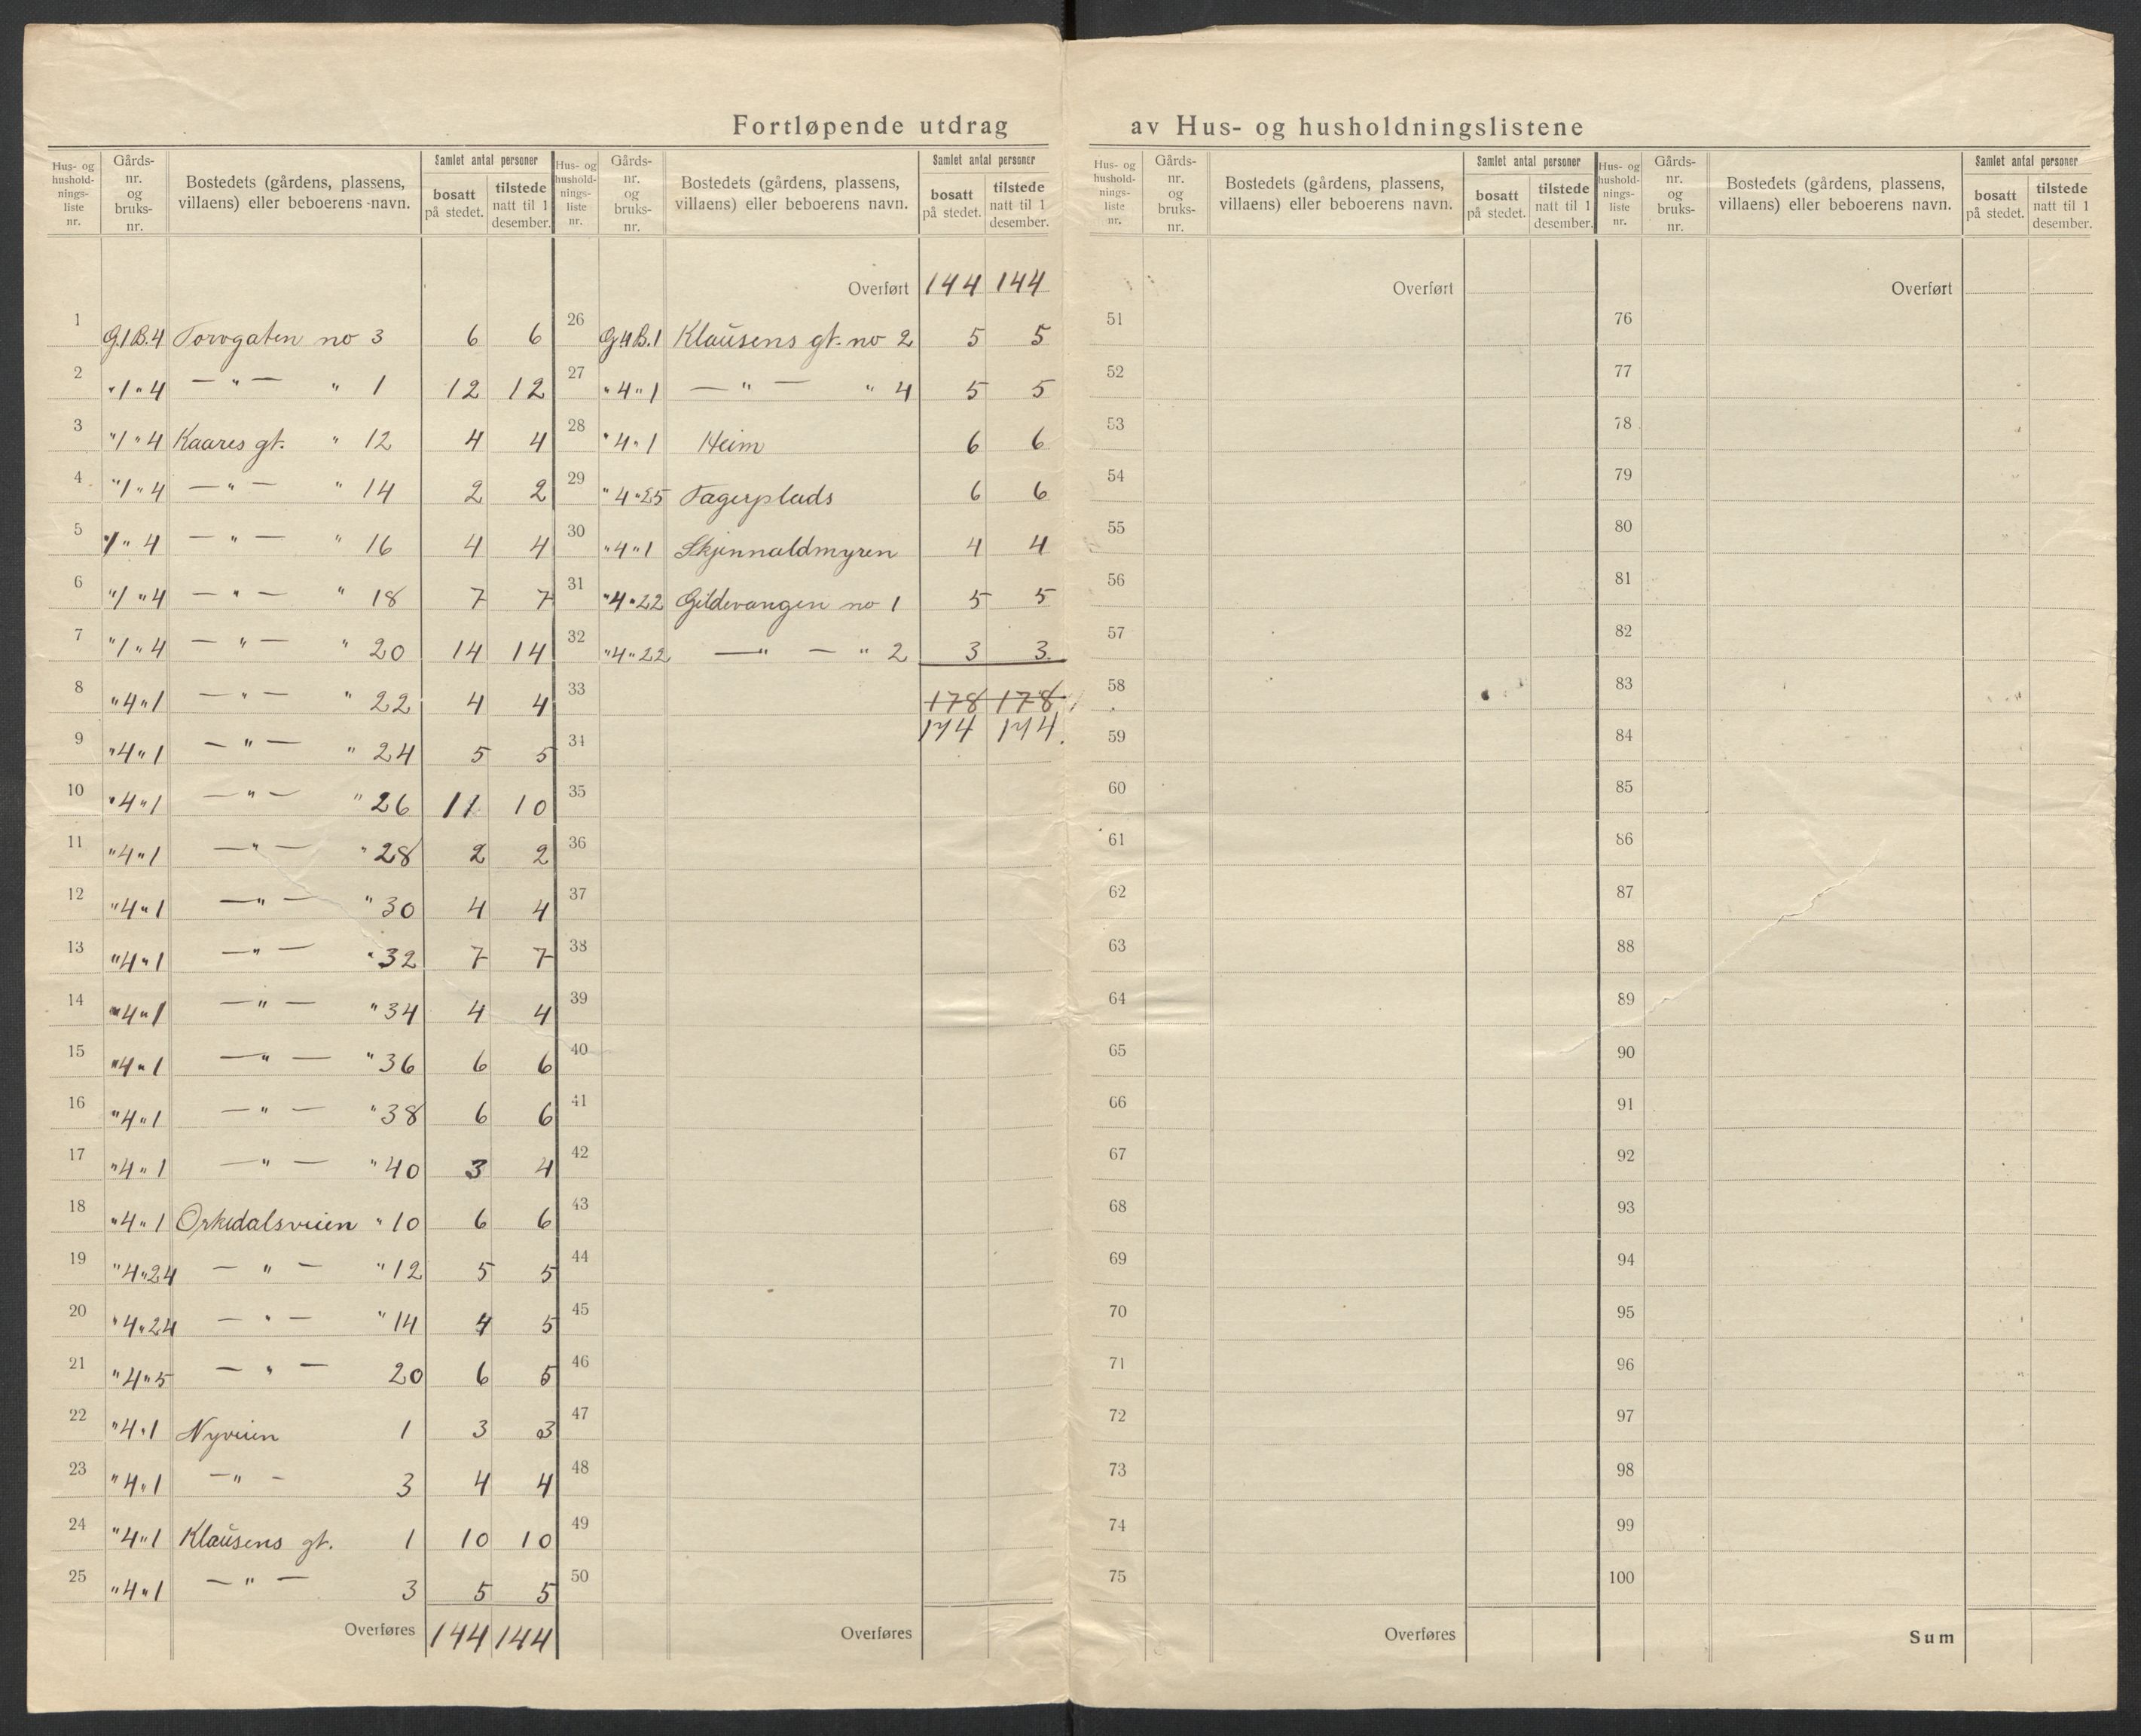 Fortløpende utdrag av Hus- og husholdningslistene
Hus- og hushold-nings-liste nr. | Gårds-nr. og bruks-nr. | Bostedets (gårdens, plassens, villaens) eller beboerens navn. | Samlet antal personer | bosatt på stedet. | tilstede natt til 1 desember.
1 G.1 B.4 Torvgaten no 3 6 6
2 " 1 " 4 — " — " 1 12 12
3 " 1 " 4 Kaares gt. " 12 4 4
4 " 1 " 4 — " — " 14 2 2
5 1 " 4 — " — " 16 4 4
6 " 1 " 4 — " — " 18 7 7
7 " 1 " 4 — " — " 20 14 14
8 " 4 " 1 — " — " 22 4 4
9 " 4 " 1 — " — " 24 5 5
10 " 4 " 1 — " — " 26 11 10
11 " 4 " 1 — " — " 28 2 2
12 " 4 " 1 — " — " 30 4 4
13 " 4 " 1 — " — " 32 7 7
14 " 4 " 1 — " — " 34 4 4
15 " 4 " 1 — " — " 36 6 6
16 " 4 " 1 — " — " 38 6 6
17 " 4 " 1 — " — " 40 3 4
18 " 4 " 1 Orkedalsveien " 10 6 6
19 " 4 " 24 — " — " 12 5 5
20 " 4 " 24 — " — " 14 4 5
21 " 4 " 5 — " — 20 6 5
22 " 4 " 1 Nyveien 1 3 3
23 " 4 " 1 — " — 3 4 4
24 " 4 " 1 Klausens gt. 1 10 10
25 " 4 " 1 — " — 3 5 5
Overføres 144 144
Hus- og hushold-nings-liste nr. | Gårds-nr. og bruks-nr. | Bostedets (gårdens, plassens, villaens) eller beboerens navn. | Samlet antal personer | bosatt på stedet. | tilstede natt til 1 desember.
Overført 144 144
26 G.4 B.1 Klausens gt. no 2 5 5
27 " 4 " 1 — " — " 4 5 5
28 " 4 " 1 Heim 6 6
29 " 4 " 25 Fagerplads 6 6
30 " 4 " 1 Skjennaldmyren 4 4
31 " 4 " 22 Gildevangen no 1 5 5
32 " 4 " 22 — " — " 2 3 3
33 178 178
34 174 174.
35
36
37
38
39
40
41
42
43
44
45
46
47
48
49
50
Overføres
Hus- og hushold-nings-liste nr. | Gårds-nr. og bruks-nr. | Bostedets (gårdens, plassens, villaens) eller beboerens navn. | Samlet antal personer | bosatt på stedet. | tilstede natt til 1 desember.
Overført
51
52
53
54
55
56
57
58
59
60
61
62
63
64
65
66
67
68
69
70
71
72
73
74
75
Overføres
Hus- og hushold-nings-liste nr. | Gårds-nr. og bruks-nr. | Bostedets (gårdens, plassens, villaens) eller beboerens navn. | Samlet antal personer | bosatt på stedet. | tilstede natt til 1 desember.
Overført
76
77
78
79
80
81
82
83
84
85
86
87
88
89
90
91
92
93
94
95
96
97
98
99
100
Sum